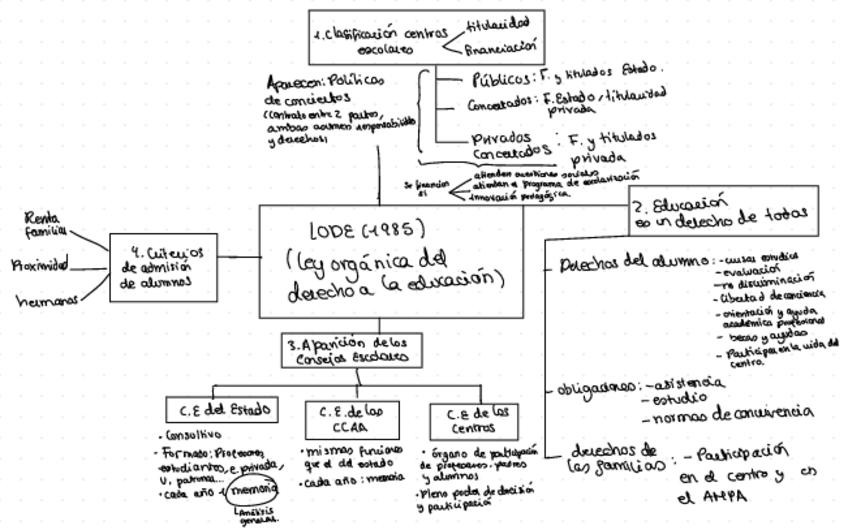 1. Clasificación centros
escolares
titularidad
financiación
Aparecen: Políticas
de conciertos
(contrato entre 2 partes,
ambas asumen responsabilidades
y derechos)
Públicos: F. y titulados Estado.
Concertados: F. Estado, titularidad
privada
Privados
Concertados : F. y titulados
privada
Se financian
si
atienden cuestiones sociales
atienden el programa de escolarización
innovación pedagógica
LODE (1985)
(Ley orgánica del
derecho a la educación)
2. Educación
es un derecho de todas
Derechos del alumno: - cursar estudios
- evaluación
- no discriminación
- libertad de conciencia
- orientación y ayuda
académica profesional
- becas y ayudas
- Participar en la vida del
centro.
obligaciones: - asistencia
- estudio
- normas de convivencia
derechos de
las familias : - Participación
en el centro y en
el AMPA
4. Criterios
de admisión
de alumnos
Renta
familiar
Proximidad
hermanos
3. Aparición de los
Consejos Escolares
C.E del Estado
• Consultivo
• Formado: Profesores,
estudiantes, e. privada,
U, patrona...
• cada año → memoria
Análisis
general.
C.E. de las
CCAA
• mismas funciones
que el del estado
• cada año: memoria
C.E de los
Centros
• órgano de participación
de profesores, padres
y alumnos
• Pleno poder de decisión
y participación